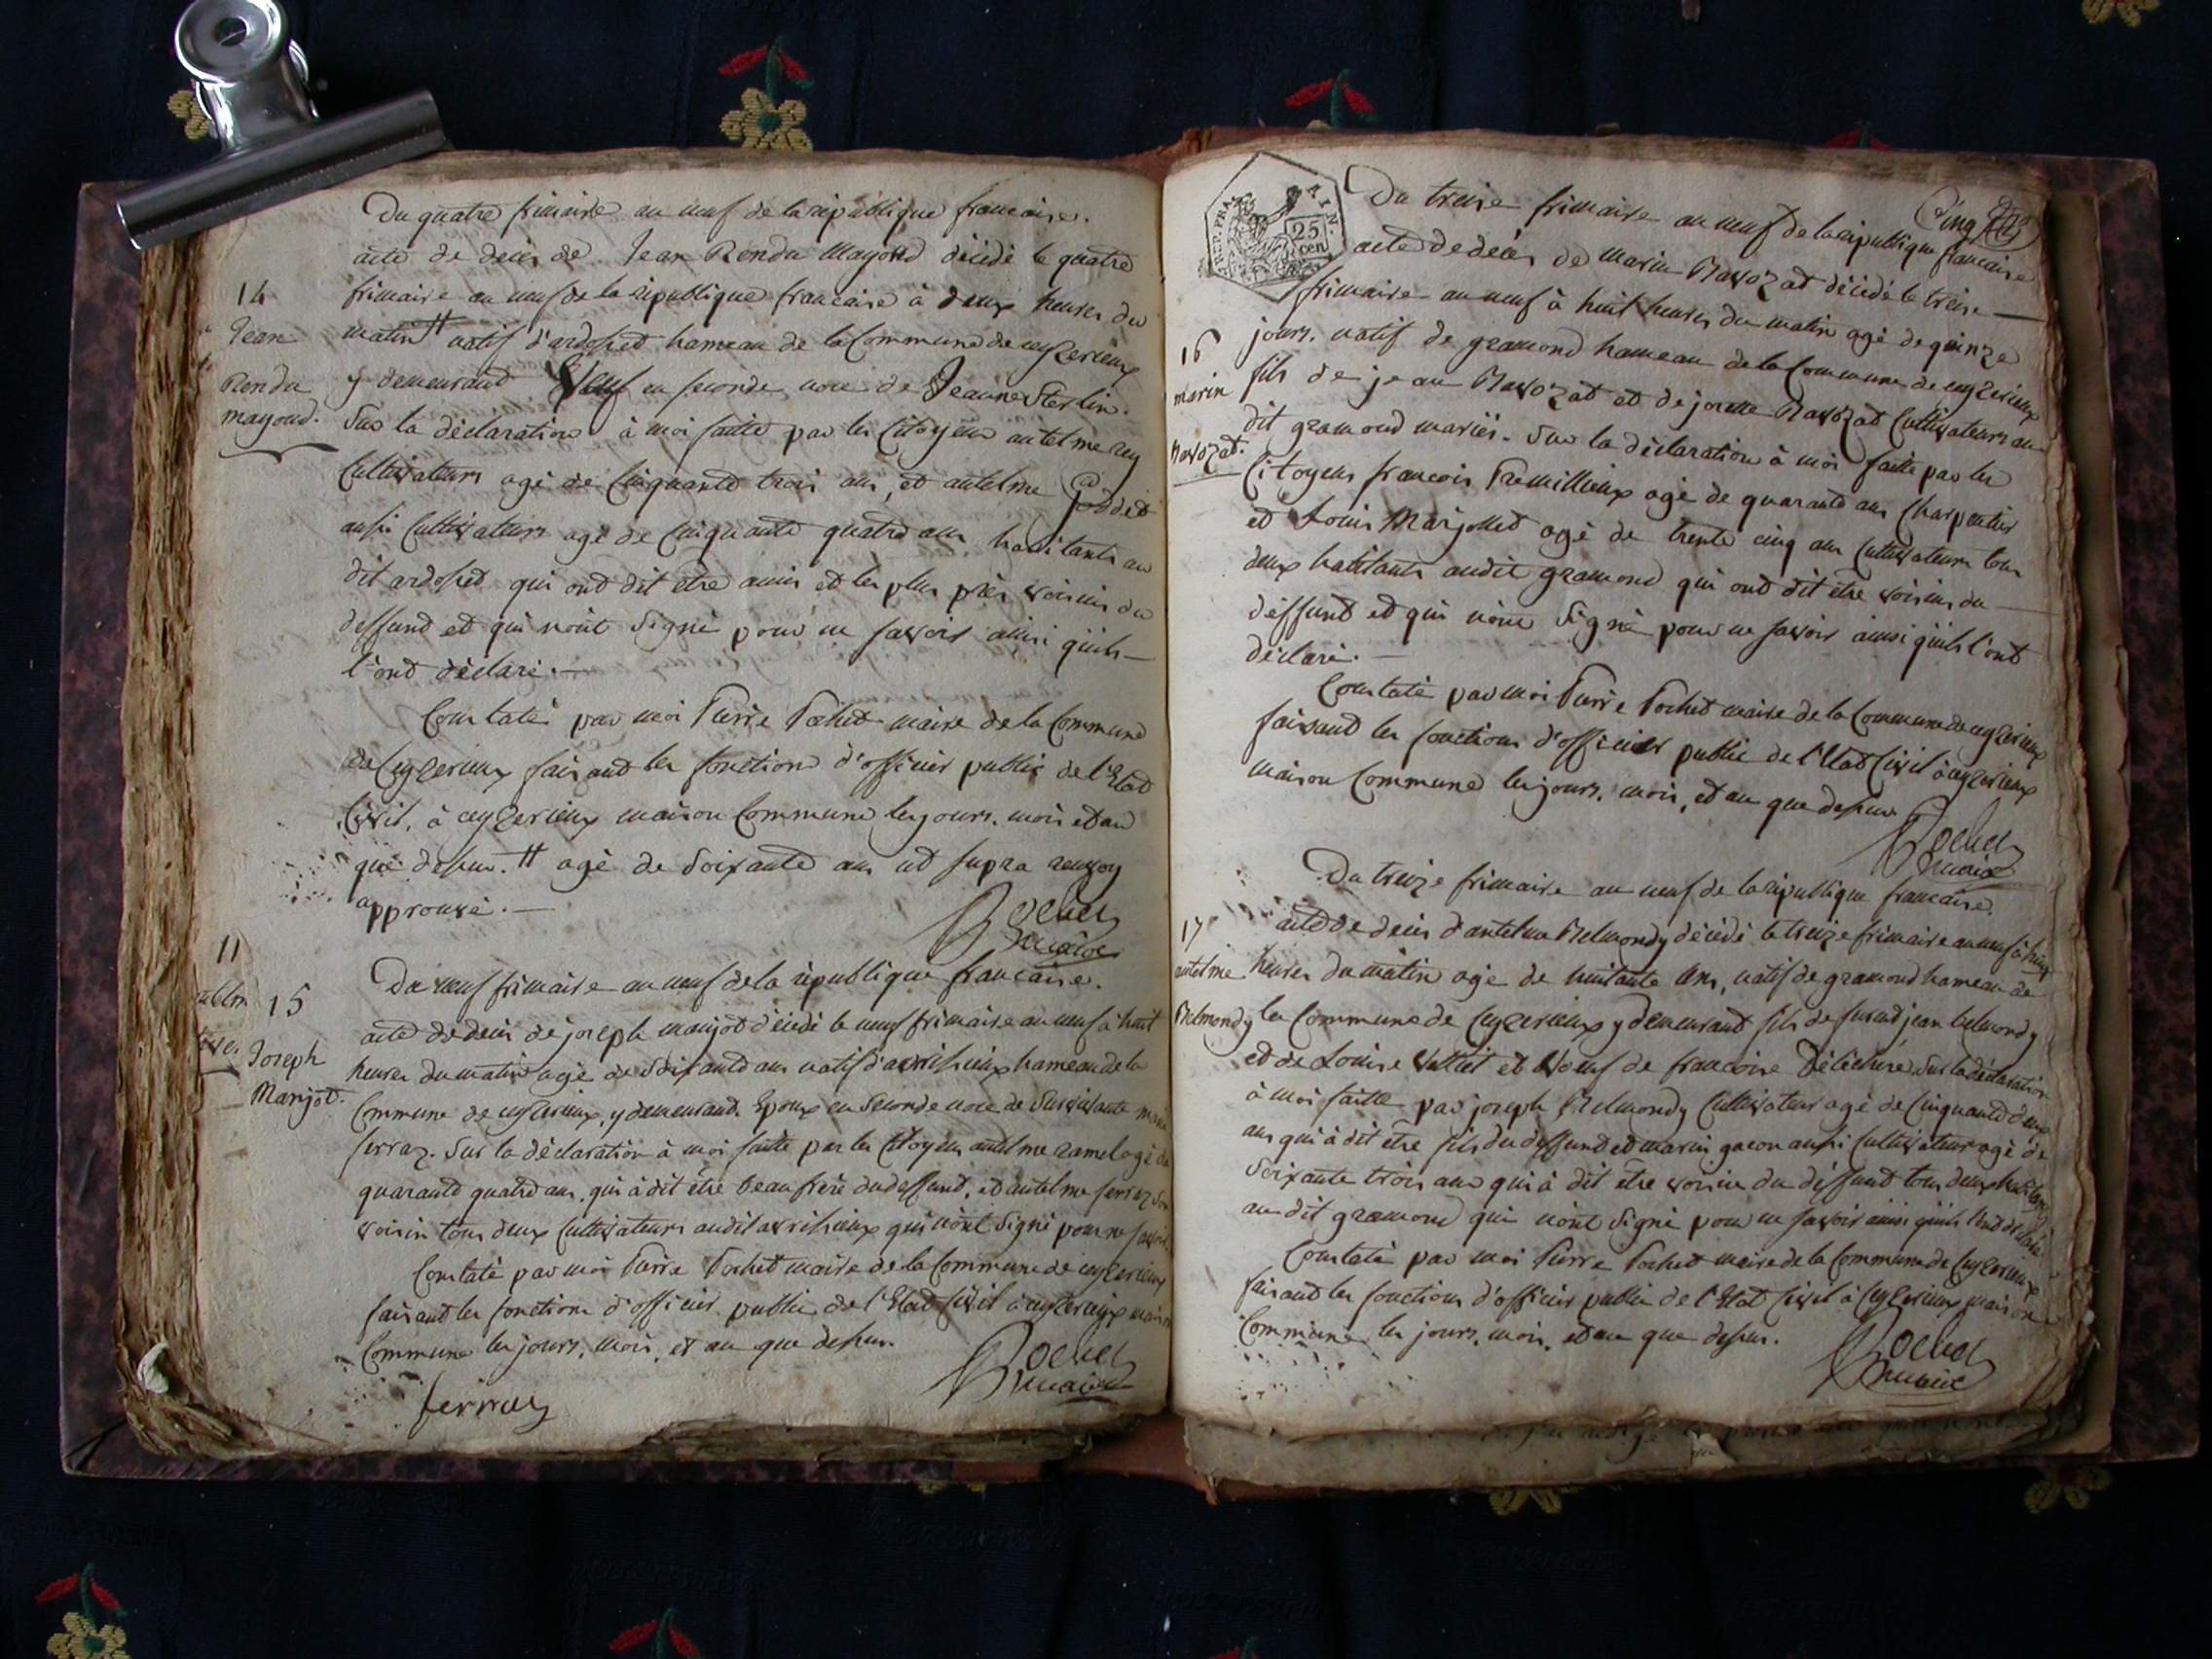 Du quatre frimaire an neuf de la république francaise.
acte de décès de Jean Rendu Magond décédé le quatre
frimaire an neuf de la république francaise à deux heures du
matin # natif d'ardosset hameau de la Commune de ceyzerieux
y demeurant Veuf en seconde noce de Jeanne
Sur la déclaration à moi faitte par les Citoyens antelme rey
Cultivateurs agé de Cinquante trois ans, et antelme
aussi Cultivateurs agé de Cinquante quatre ans habitants au
dit ardosset qui ont dit être amis et les plus près voisins du
deffunt et qui n'ont Signé pour ne savoir ainsi qu'ils
l'ont déclaré.
Constaté par moi Pierre Pochet maire de la Commune
de Ceyzerieux faisant les fonctions d'officier public de l'Etat
Civil, à ceyzerieux maison Commune les jours, mois et an
que dessus. # agé de Soixante ans ut supra renvoy
approuvé.
Pochet
maire
14
Jean
Rendu
magond.
11
Du neuf frimaire an neuf de la république francaise.
acte de décès de joseph manjot décédé le neuf frimaire an neuf à huit
heures du matin agé de Soixante ans natif d'avrissieux hameau de la
Commune de ceyzerieux, y demeurant. Epoux en Seconde noce de Survivante
ferraz. Sur la déclaration à moi faitte par les Citoyens antelme ramel agé de
quarante quatre ans, qui à dit être beau frère du deffunt, et antelme ferraz son
voisin tous deux Cultivateurs audit avrissieux qui n'ont Signé pour ne savoir
Constaté par moi Pierre Pochet maire de la Commune de ceyzerieux
faisant les fonctions d'officier public de l'Etat Civil à ceyzerieux maison
Commune les jours, mois, et an que dessus.
Pochet
maire
ferraz
15
Joseph
Manjot.
Cinq
25
cen
Du treize frimaire an neuf de la république francaise
acte de décès de marin Navozat décédé le treize
frimaire an neuf à huit heures du matin agé de quinze
jours, natif de gramond hameau de la Commune de ceyzerieux
fils de jean Navozat et de josette Navozat Cultivateurs au
dit gramond mariés. Sur la déclaration à moi faitte par les
Citoyens francois Premillieux agé de quarante ans Charpentier
et Louis Marjollet agé de trente cinq ans Cultivateurs tous
deux habitants audit gramond qui ont dit être voisins du
déffunt et qui n'ont Signé pour ne savoir ainsi qu'ils l'ont
déclaré.
Constaté par moi Pierre Pochet maire de la Commune de ceyzerieux
faisant les fonctions d'officier public de l'Etat Civil à ceyzerieux
maison Commune les jours, mois, et an que dessus
Pochet
maire
16
marin
Navozat.
Du treize frimaire an neuf de la république francaise.
acte de décès d'antelme Belmondy décédé le treize frimaire an neuf à huit
heures du matin agé de huitante ans, natif de gramond hameau de
la Commune de Ceyzerieux y demeurant fils de feu jean belmondy
et de Louise et Veuf de francoise Sur la déclaration
à moi faitte par joseph Belmondy Cultivateur agé de Cinquante deux
ans qui à dit être fils du deffunt et marin gacon aussi Cultivateur agé de
Soixante trois ans qui à dit etre voisin du déffunt tous deux habitants
au dit gramond qui n'ont Signé pour ne savoir ainsi qu'ils l'ont déclaré
Constaté par moi Pierre Pochet maire de la Commune de Ceyzerieux
faisant les fonctions d'officier public de l'Etat Civil à Ceyzerieux maison
Commune les jours, mois, et an que dessus.
Pochet
maire
17
antelme
Belmondy